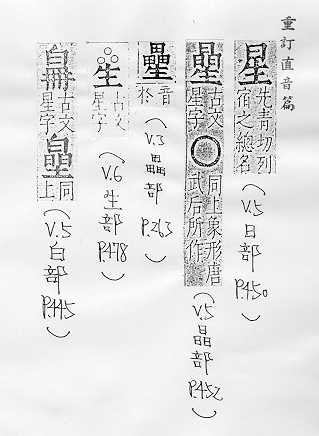 重訂直音篇
星 先青切列宿之總名 (V.5 日部 P.450)
曐 古文星字 〇 同上象形唐武后所作 (V.5 晶部 P.452)
音 (V.3 畾部 P.263)
古文星字 (V.6 生部 P.478)
古文星字 同上 (V.5 白部 P.445)